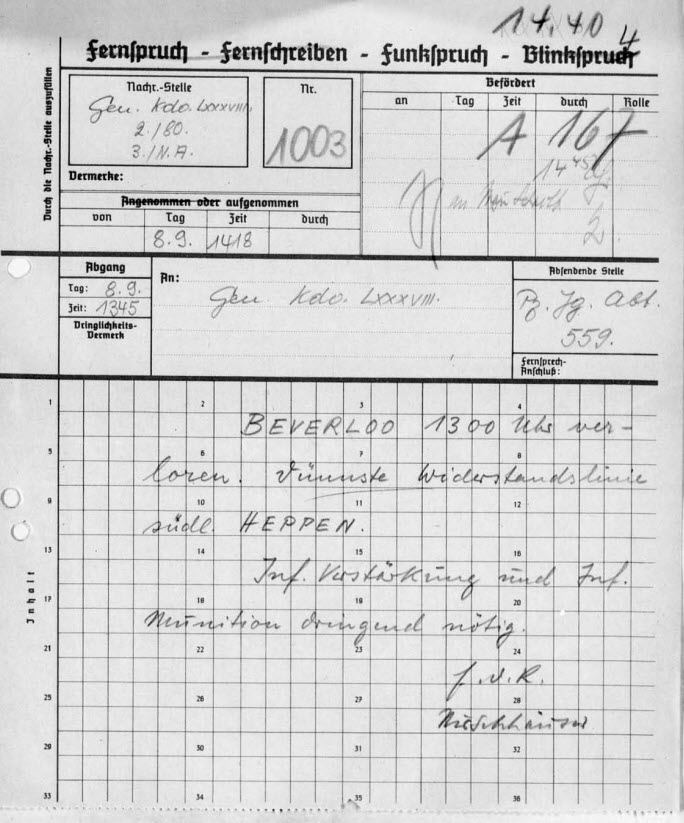 14.40 4
Fernspruch - Fernschreiben - Funkspruch - Blinkspruch
Durch die Nachr.-Stelle auszufüllen
Nachr.-Stelle
Gen. Kdo. LXXXVIII.
2./80.
3./N.A.
Nr.
1003
Befördert
an Tag Zeit durch Rolle
A 167
14 45
Vermerke:
Angenommen oder aufgenommen
von Tag Zeit durch
8.9. 1418
Abgang
Tag: 8.9.
Zeit: 1345
Dringlichkeits-
Vermerk
An:
Gen. Kdo. LXXXVIII.
Absendende Stelle
Pz. Jg. Abt.
559.
Fernsprech-
Anschluß:
Inhalt
1 2 3 4
BEVERLOO 1300 Uhr ver-
5 6 7 8
loren. Dünnste Widerstandslinie
9 10 11 12
südl. HEPPEN.
13 14 15 16
Inf. Verstärkung und Inf.
17 18 19 20
Munition dringend nötig.
21 22 23 24
f.d.R.
25 26 27 28
29 30 31 32
33 34 35 36